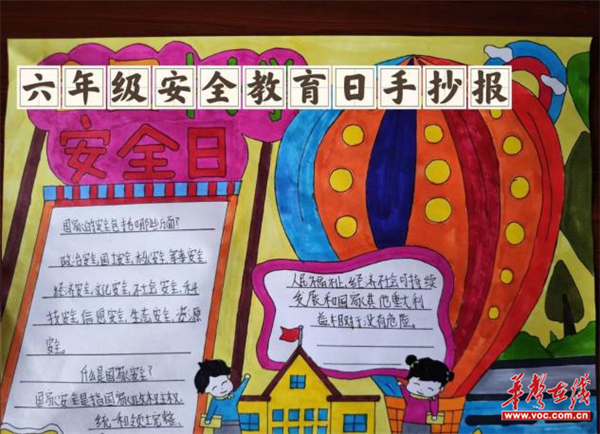 六年级安全教育日手抄报
安全日
国家的安全包括哪些方面?
政治安全,国土安全,核安全,军事安全
经济安全,文化安全,社会安全,科
技安全,信息安全,生态安全,资源
安全。
什么是国家安全?
国家安全是指国家政权主权
统一和领土完整
人民福祉,经济社会可持续
发展和国家其他重大利
益相对于没有危险。
华声在线
www.voc.com.cn